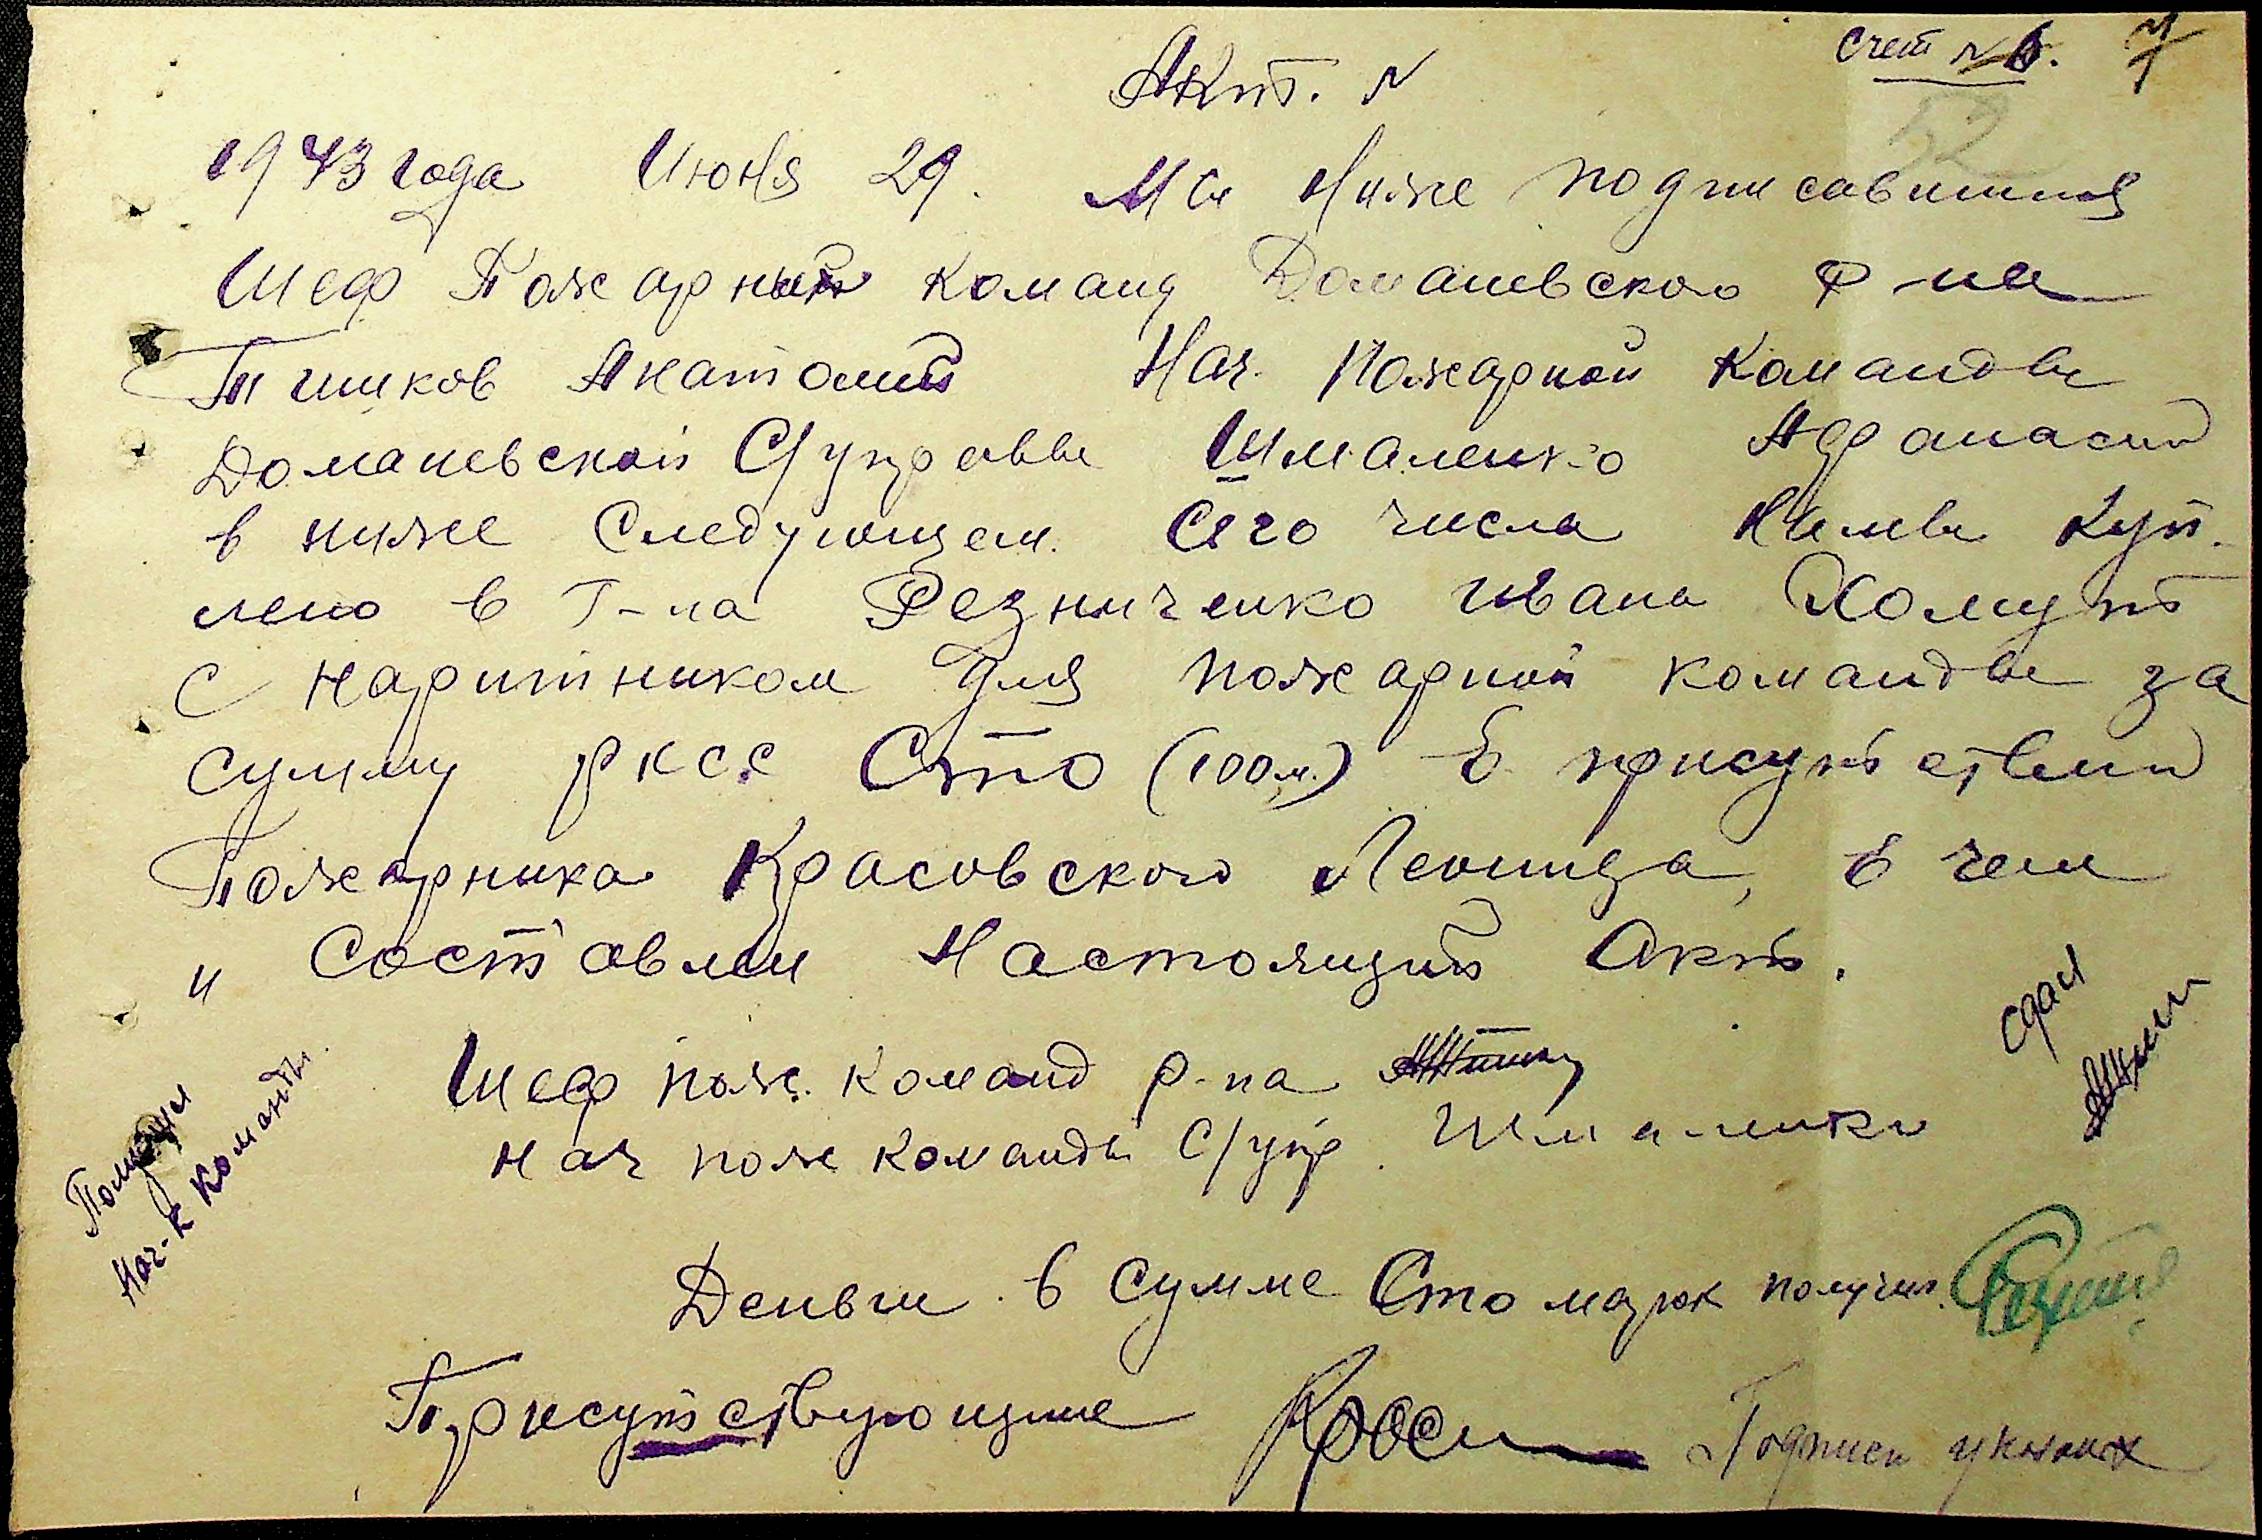 Счет №6.
Акт. №
1943 года Июня 29. Мы ниже подписавшиися
Шеф Пожарных команд Доманевского р-на
Тишков Анатолий Нач. Пожарной команды
Доманевской С/управы Шмаленко Афанасий
в ниже следующем. Сего числа нами куп-
лено в г-на Резниченко Ивана Хомут
с наритником для пожарной команды за
сумму рксс Сто (100 м.) в присутствии
Пожарника Красовского Леонида, в чем
и составлен настоящий акт.
Шеф пож. команд р-на
Нач пож команды С/упр. Шмаленко
Сдал
Получил
Нач-к команды.
Деньги в сумме Сто марок получил.
Присутствующие Крас
Подписи